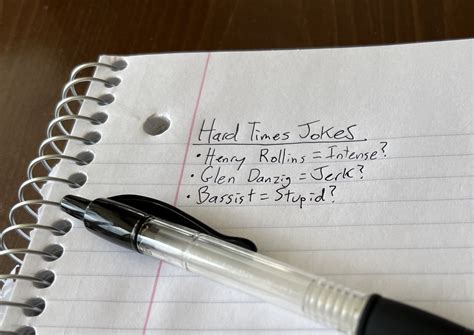 Hard Times Jokes
• Henry Rollins = Intense?
• Glen Danzig = Jerk?
• Bassist = Stupid?